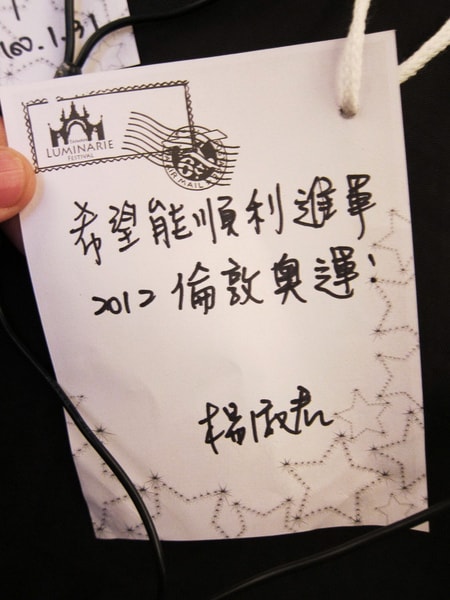 100.1.31
LUMINARIE
FESTIVAL
AIR MAIL
希望能順利進軍
2012倫敦奧運!
楊淑君